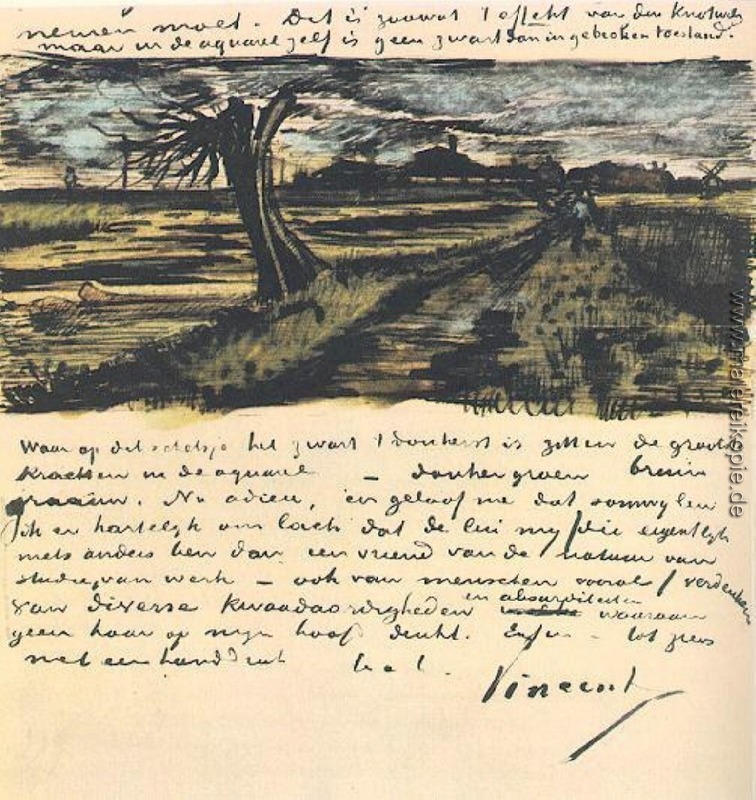 nemen moet. Dit is zoowat 't effekt van den Knotwilg
maar in de aquarel zelf is geen zwart dan in gebroken toestand.
Waar op dit schetsje het zwart 't donkerst is zitten de grootste
krachten in de aquarel – donkergroen bruin
graauw. Nu adieu, en geloof me dat somwijlen
ik er hartelijk om lach dat de lui mij /die eigentlijk
niets anders ben dan een vriend van de natuur van
studie, van werk – ook van menschen vooral/ verdenken
van diverse kwaadaardigheden en absurditeiten waaraan
geen haar op mijn hoofd denkt. Enfin – tot ziens
met een handdruk t. à t.
Vincent
www.malereikopie.de